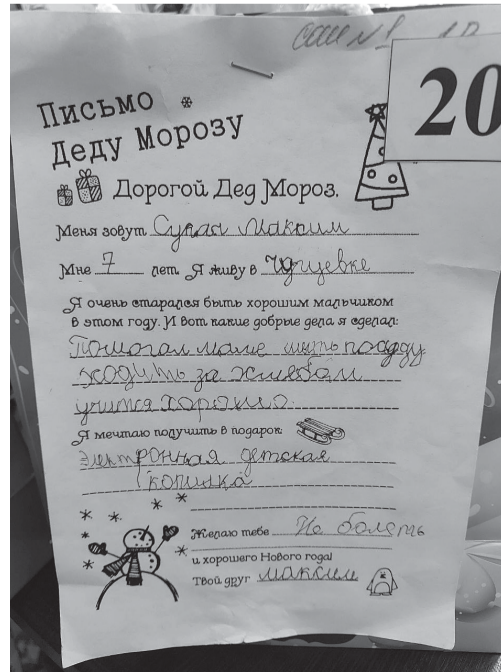 СОШ №1
20
Письмо
Деду Морозу
Дорогой Дед Мороз.
Меня зовут Супан Максим
Мне 7 лет. Я живу в
Я очень старался быть хорошим мальчиком
в этом году. И вот какие добрые дела я сделал:
Помогал маме мыть посуду
ходить за хлебом
учится хорошо.
Я мечтаю получить в подарок:
электронная детская
копилка
Желаю тебе Не болеть
и хорошего Нового года!
Твой друг максим